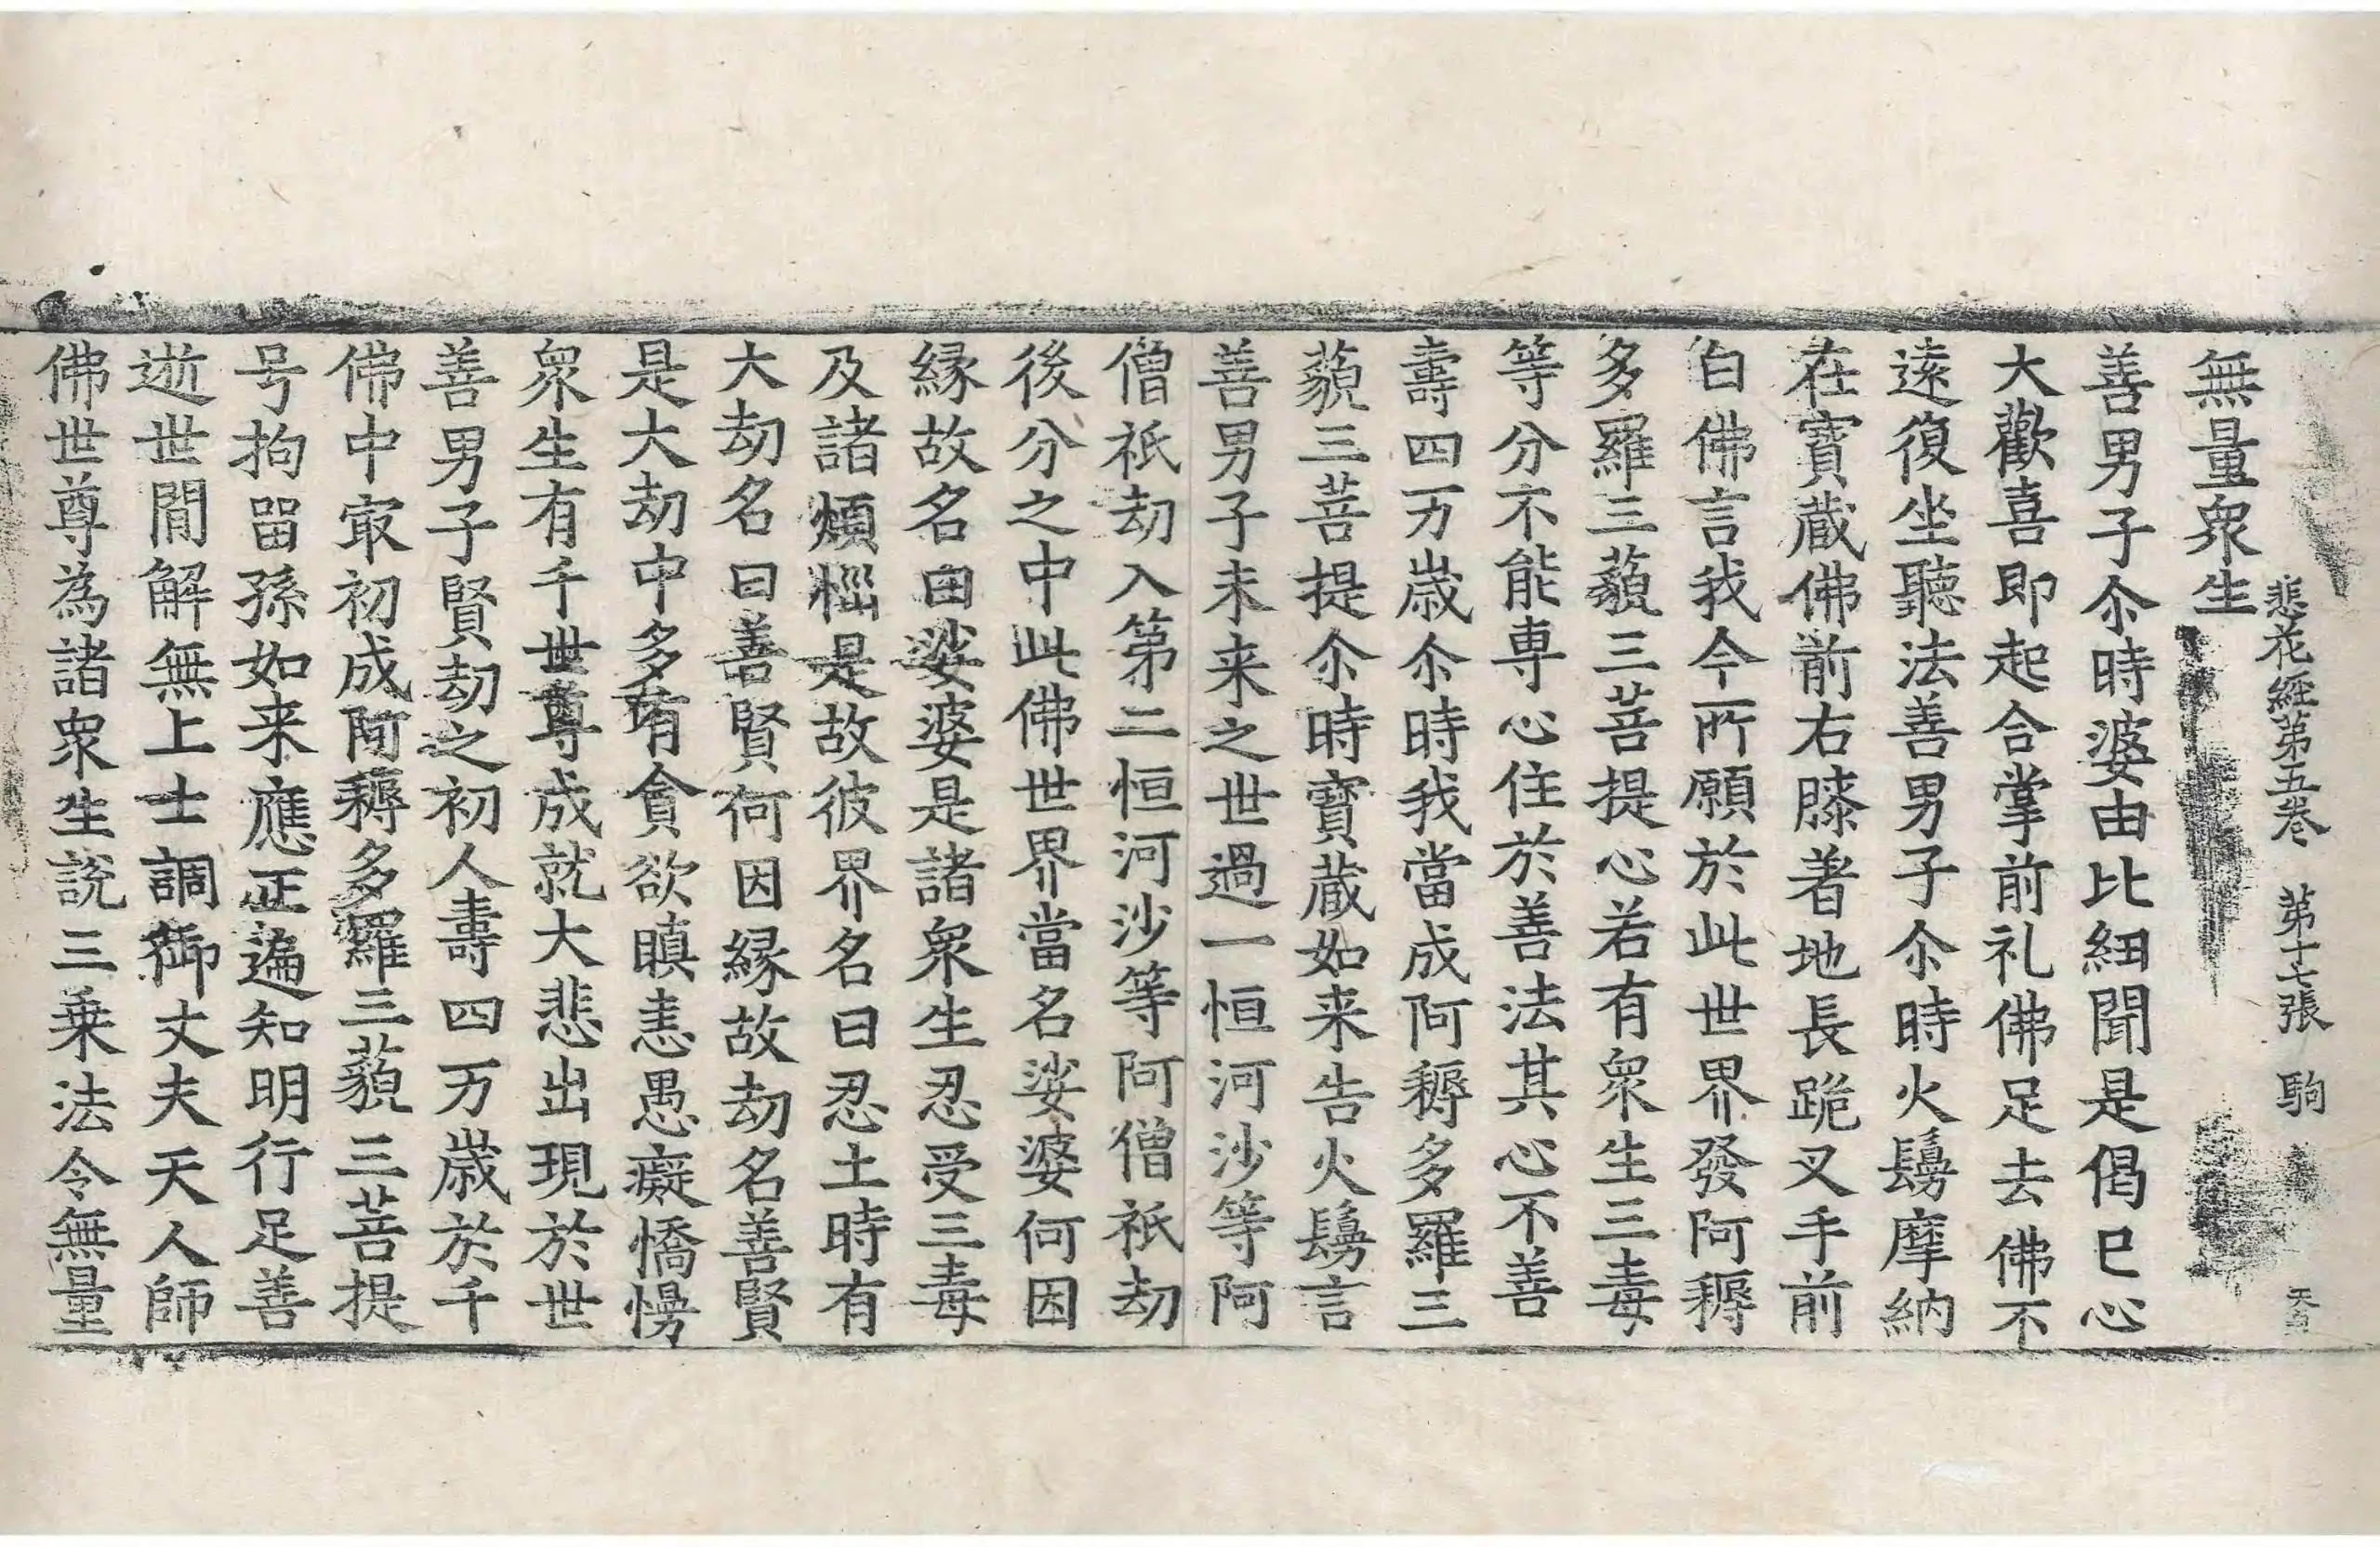 悲花經第五卷 第十七張 駒
無量衆生
善男子尒時婆由比紐聞是偈已心
大歡喜即起合掌前礼佛足去佛不
遠復坐聽法善男子尒時火鬘摩納
在寶蔵佛前右膝著地長跪叉手前
白佛言我今所願於此世界發阿耨
多羅三藐三菩提心若有衆生三毒
等分不能専心住於善法其心不善
壽四万歳尒時我當成阿耨多羅三
藐三菩提尒時寶蔵如来告火鬘言
善男子未来之世過一恒河沙等阿
僧祇劫入第二恒河沙等阿僧祇劫
後分之中此佛世界當名娑婆何因
縁故名曰娑婆是諸衆生忍受三毒
及諸煩惱是故彼界名曰忍土時有
大劫名曰善賢何因縁故劫名善賢
是大劫中多有貪欲瞋恚愚癡憍慢
衆生有千世尊成就大悲出現於世
善男子賢劫之初人壽四万歳於千
佛中㝡初成阿耨多羅三藐三菩提
号拘留孫如来應正遍知明行足善
逝世間解無上士調御丈夫天人師
佛世尊為諸衆生説三乗法令無量